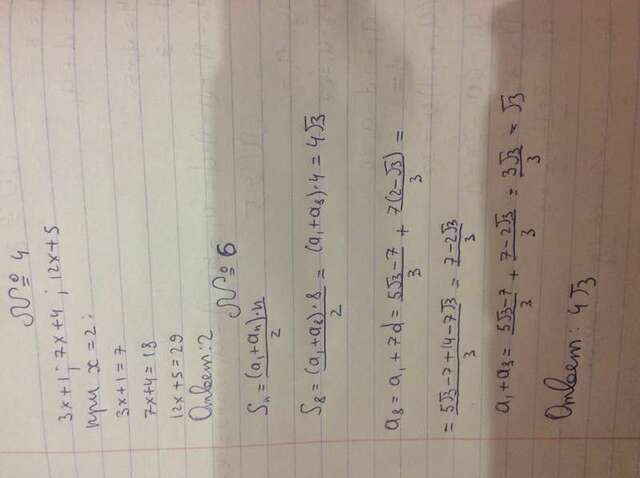 № 4
3x+1 ; 7x+4 ; 12x+5
при x=2:
3x+1=7
7x+4=18
12x+5=29
Ответ: 2
№ 6
Sₙ = (a₁+aₙ)·n / 2
S₈ = (a₁+a₈)·8 / 2 = (a₁+a₈)·4 = 4√3
a₈ = a₁+7d = 5√3-7 / 3 + 7(2-√3) / 3 =
= 5√3-7+14-7√3 / 3 = 7-2√3 / 3
a₁+a₈ = 5√3-7 / 3 + 7-2√3 / 3 = 3√3 / 3 = √3
Ответ: 4√3